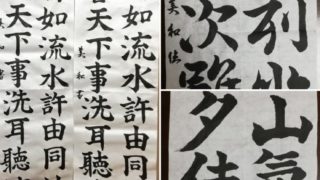 如流水許由同
天下事洗耳聽
美和
如流水許由同
天下事洗耳聽
列
次
美和
山
夕佳